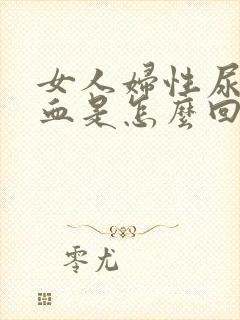 女人婦性尿
血是怎麼回
零尤